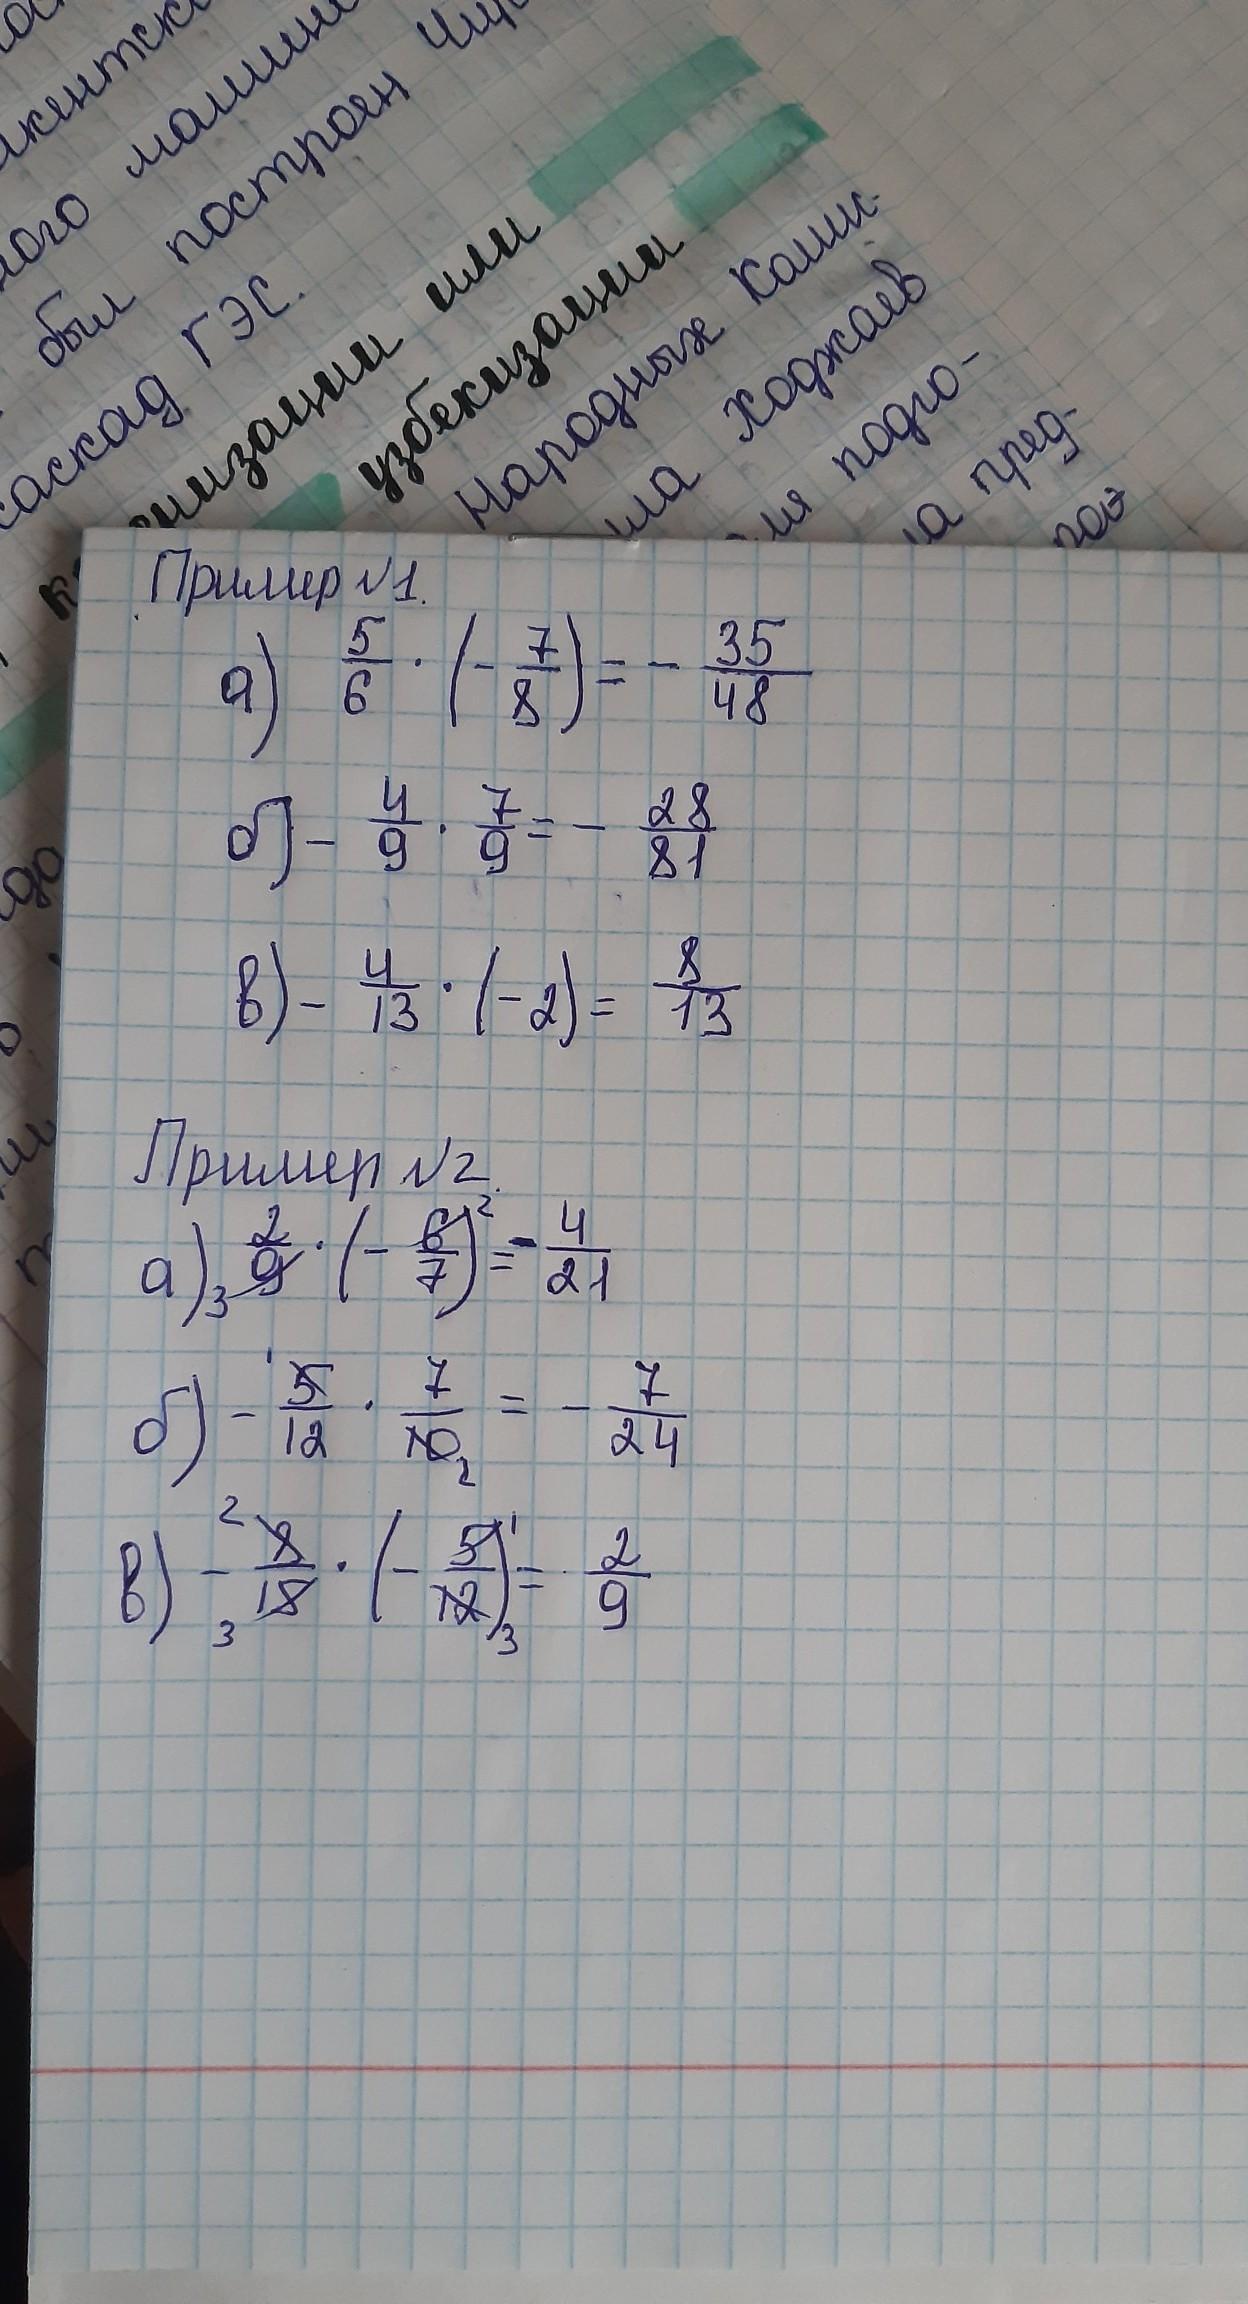 ого машин
был построен Чир
каскад ГЭС.
или
узбекизации
Народных Комис-
Ходжаев
подго-
пред-
Пример №1.
а) 5/6 · (-7/8) = - 35/48
б) - 4/9 · 7/9 = - 28/81
в) - 4/13 · (-2) = 8/13
Пример №2.
а) 3 2/9 · (-6/7) 2 = - 4/21
б) - 1 5/12 · 7/10 2 = - 7/24
в) - 2 8/15 3 · (- 5/12) 1 3 = 2/9